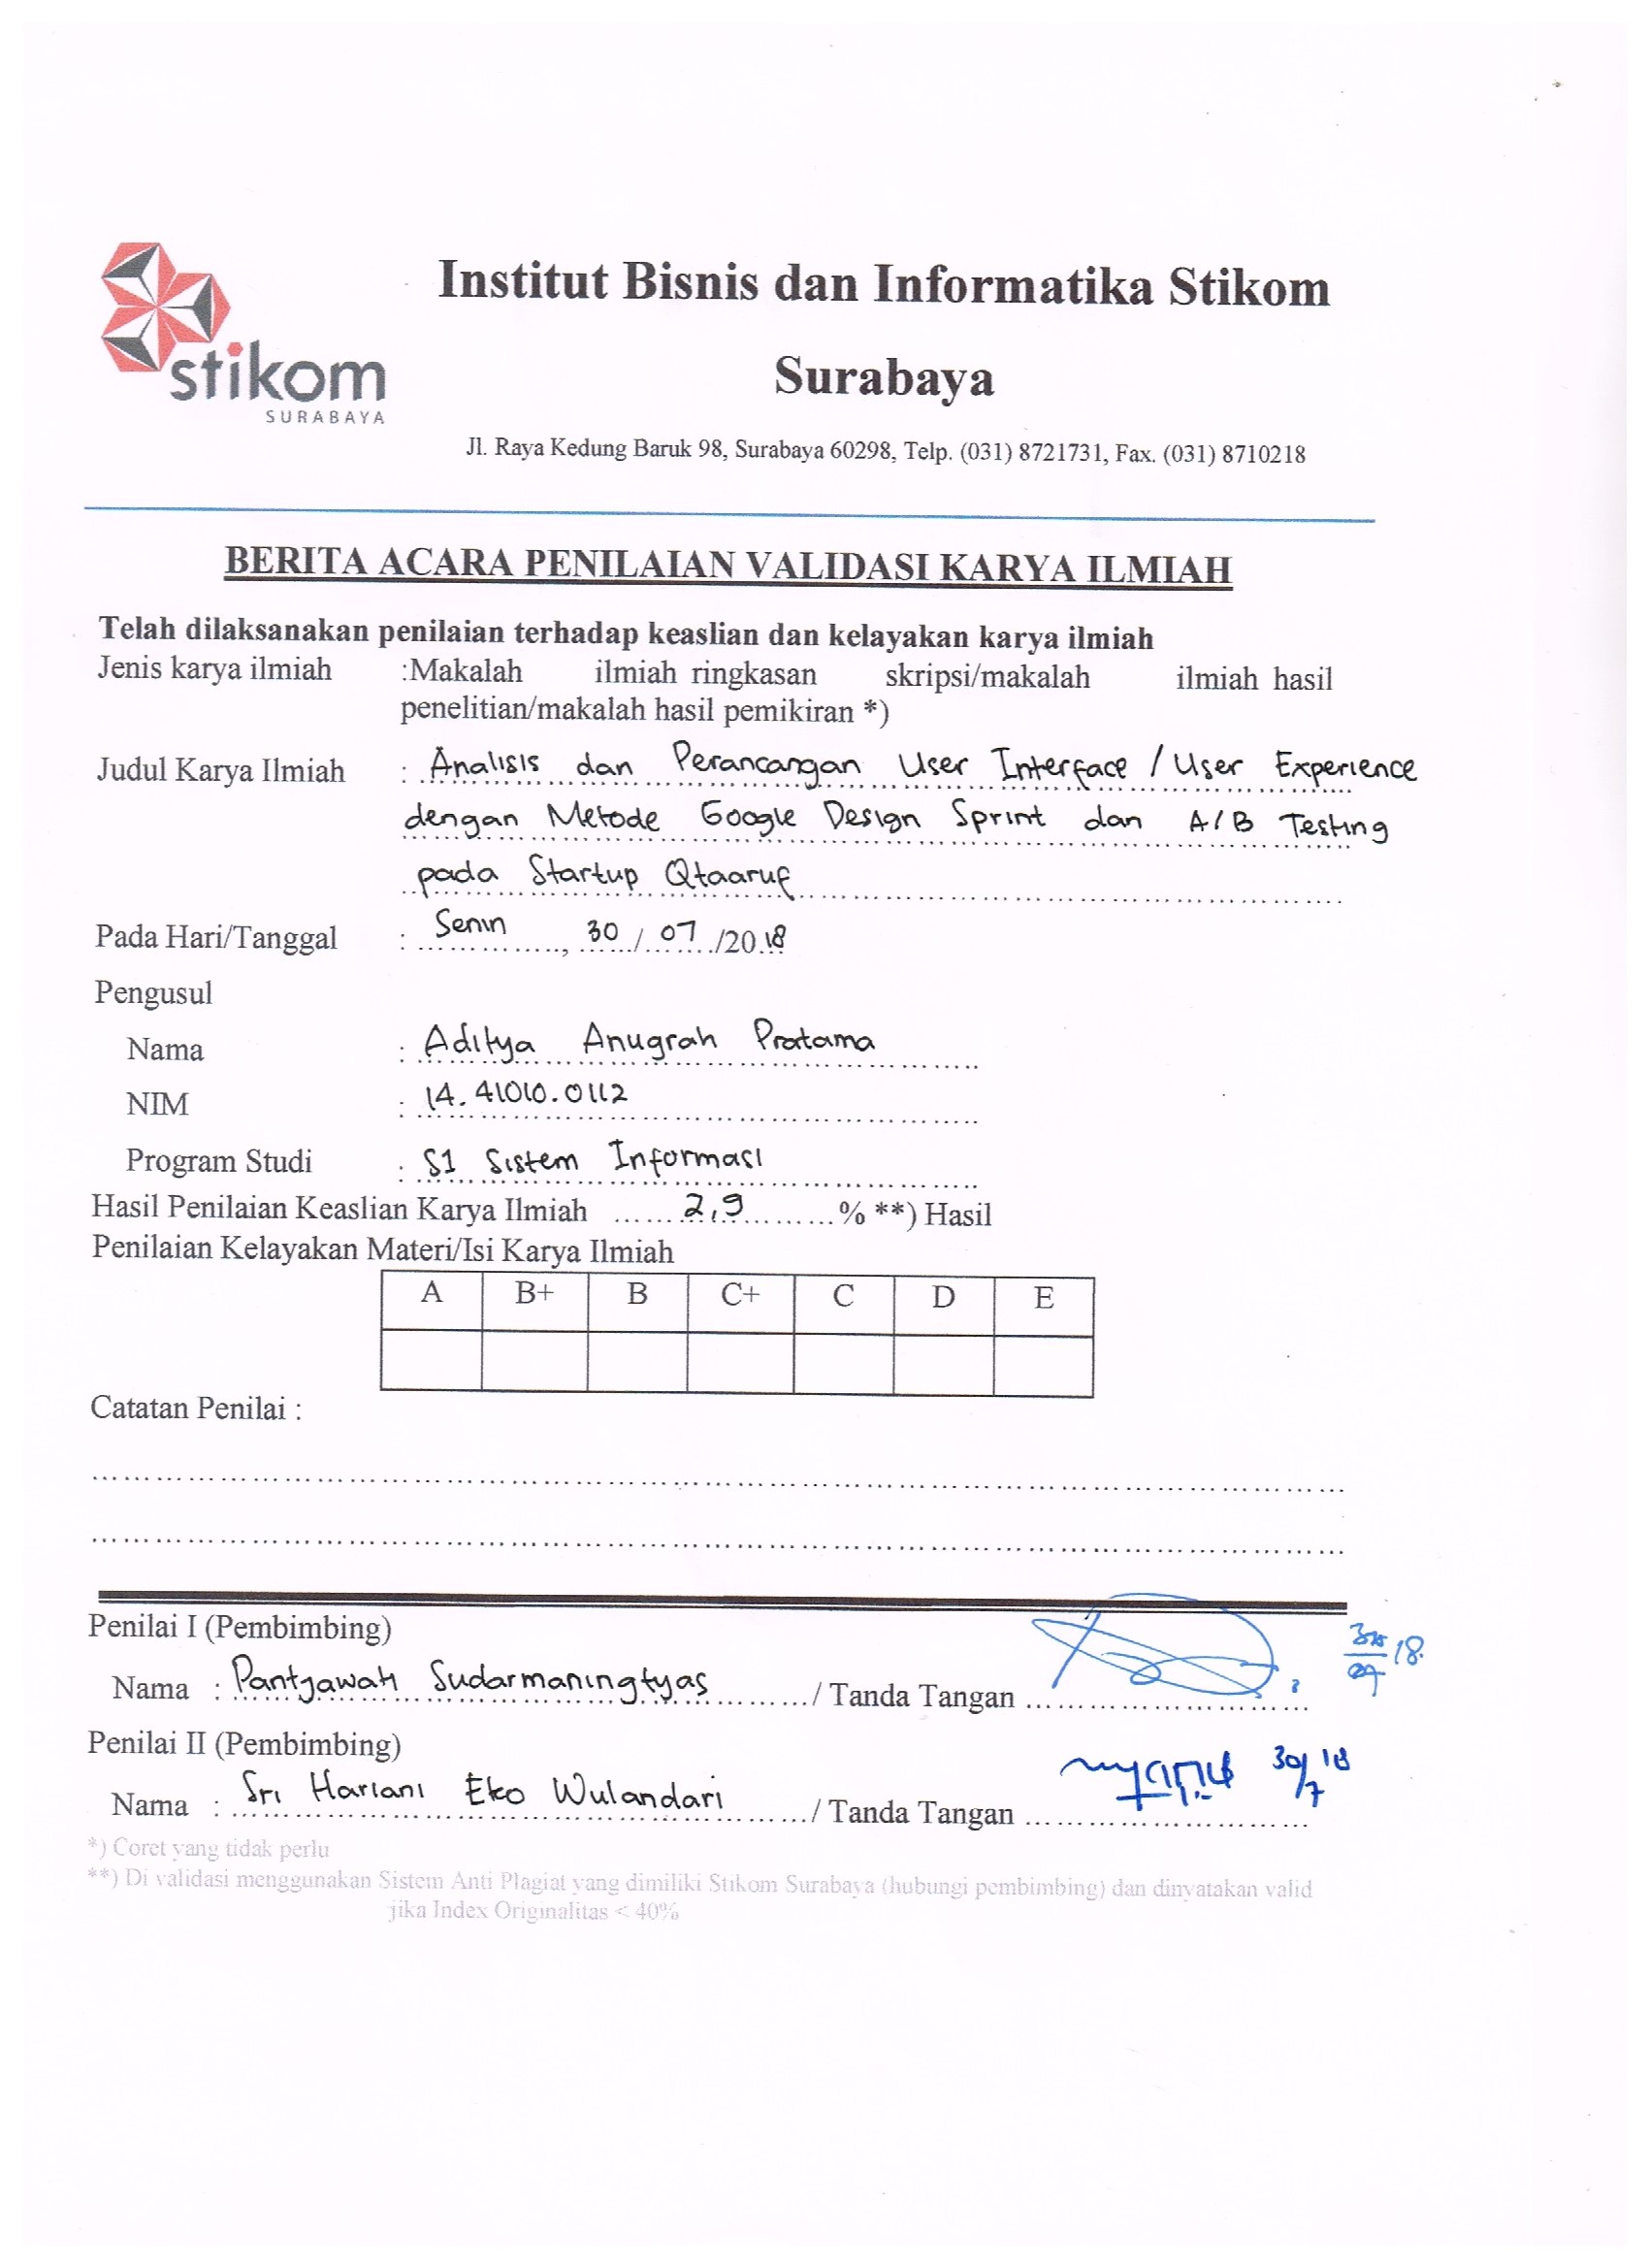 stikom
SURABAYA
Institut Bisnis dan Informatika Stikom
Surabaya
Jl. Raya Kedung Baruk 98, Surabaya 60298, Telp. (031) 8721731, Fax. (031) 8710218
BERITA ACARA PENILAIAN VALIDASI KARYA ILMIAH
Telah dilaksanakan penilaian terhadap keaslian dan kelayakan karya ilmiah
Jenis karya ilmiah :Makalah ilmiah ringkasan skripsi/makalah ilmiah hasil
penelitian/makalah hasil pemikiran *)
Judul Karya Ilmiah : Analisis dan Perancangan User Interface / User Experience
dengan Metode Google Design Sprint dan A/B Testing
pada Startup Qtaaruf
Pada Hari/Tanggal : Senin, 30 / 07 /2018
Pengusul
Nama : Aditya Anugrah Pratama
NIM : 14.41010.0112
Program Studi : S1 Sistem Informasi
Hasil Penilaian Keaslian Karya Ilmiah ......2,9.........% **) Hasil
Penilaian Kelayakan Materi/Isi Karya Ilmiah
A B+ B C+ C D E
Catatan Penilai :
Penilai I (Pembimbing)
Nama : Pantjawati Sudarmaningtyas ........./ Tanda Tangan ........................
18.
Penilai II (Pembimbing)
Nama : Sri Hariani Eko Wulandari ........./ Tanda Tangan ........................
30/7 18
*) Coret yang tidak perlu
**) Di validasi menggunakan Sistem Anti Plagiat yang dimiliki Stikom Surabaya (hubungi pembimbing) dan dinyatakan valid
jika Index Originalitas < 40%